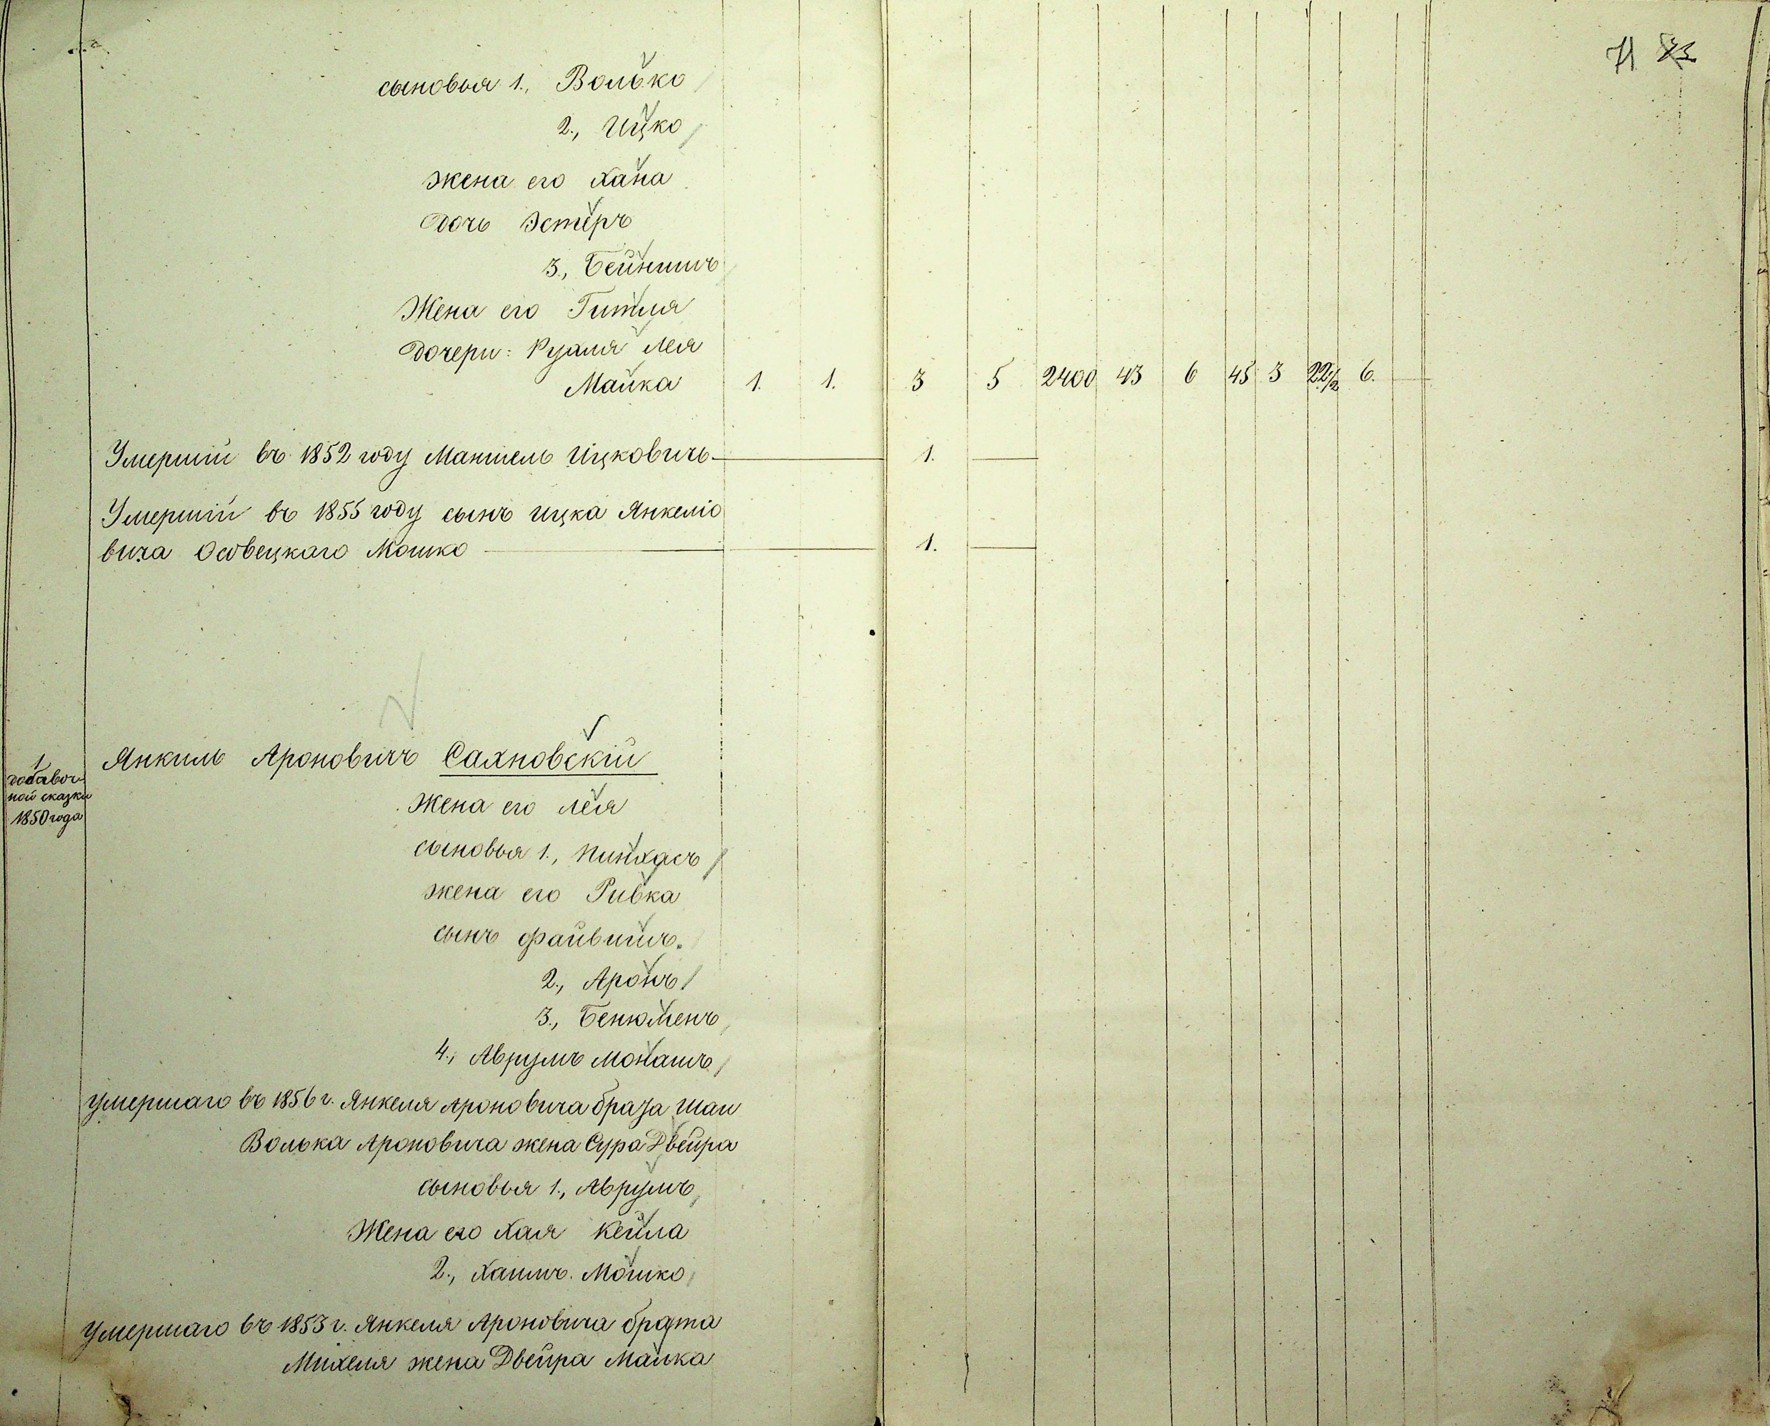 71 73
сыновья 1., Волько
2., Ицко
жена его Хана
дочь Эстеръ
3., Бейнишъ
Жена его Гитля
дочери: Руаля Лея
Малка 1. 1. 3 5 2400 43 6 45 3 22 1/2 6.
Умершій въ 1852 году Маншель Ицковичъ 1.
Умершій въ 1855 году сынъ Ицка Янкеліо
вича Осовецкаго Мошко 1.
1
добавоч
ной сказки
1850 года
Янкиль Ароновичъ Сахновскій
Жена его Лея
сыновья 1., Пинхасъ
жена его Ривка
сынъ Файвишъ.
2., Аронъ
3., Бенюменъ
4., Аврумъ Монашъ
умершаго въ 1856 г. Янкеля Ароновича брата Шаи
Волька Ароновича жена Сура Двейра
сыновья 1., Аврумъ
Жена его Хая Кейла
2., Хаимъ Мошко
умершаго въ 1853 г. Янкеля Ароновича брата
Михеля жена Двейра Малка